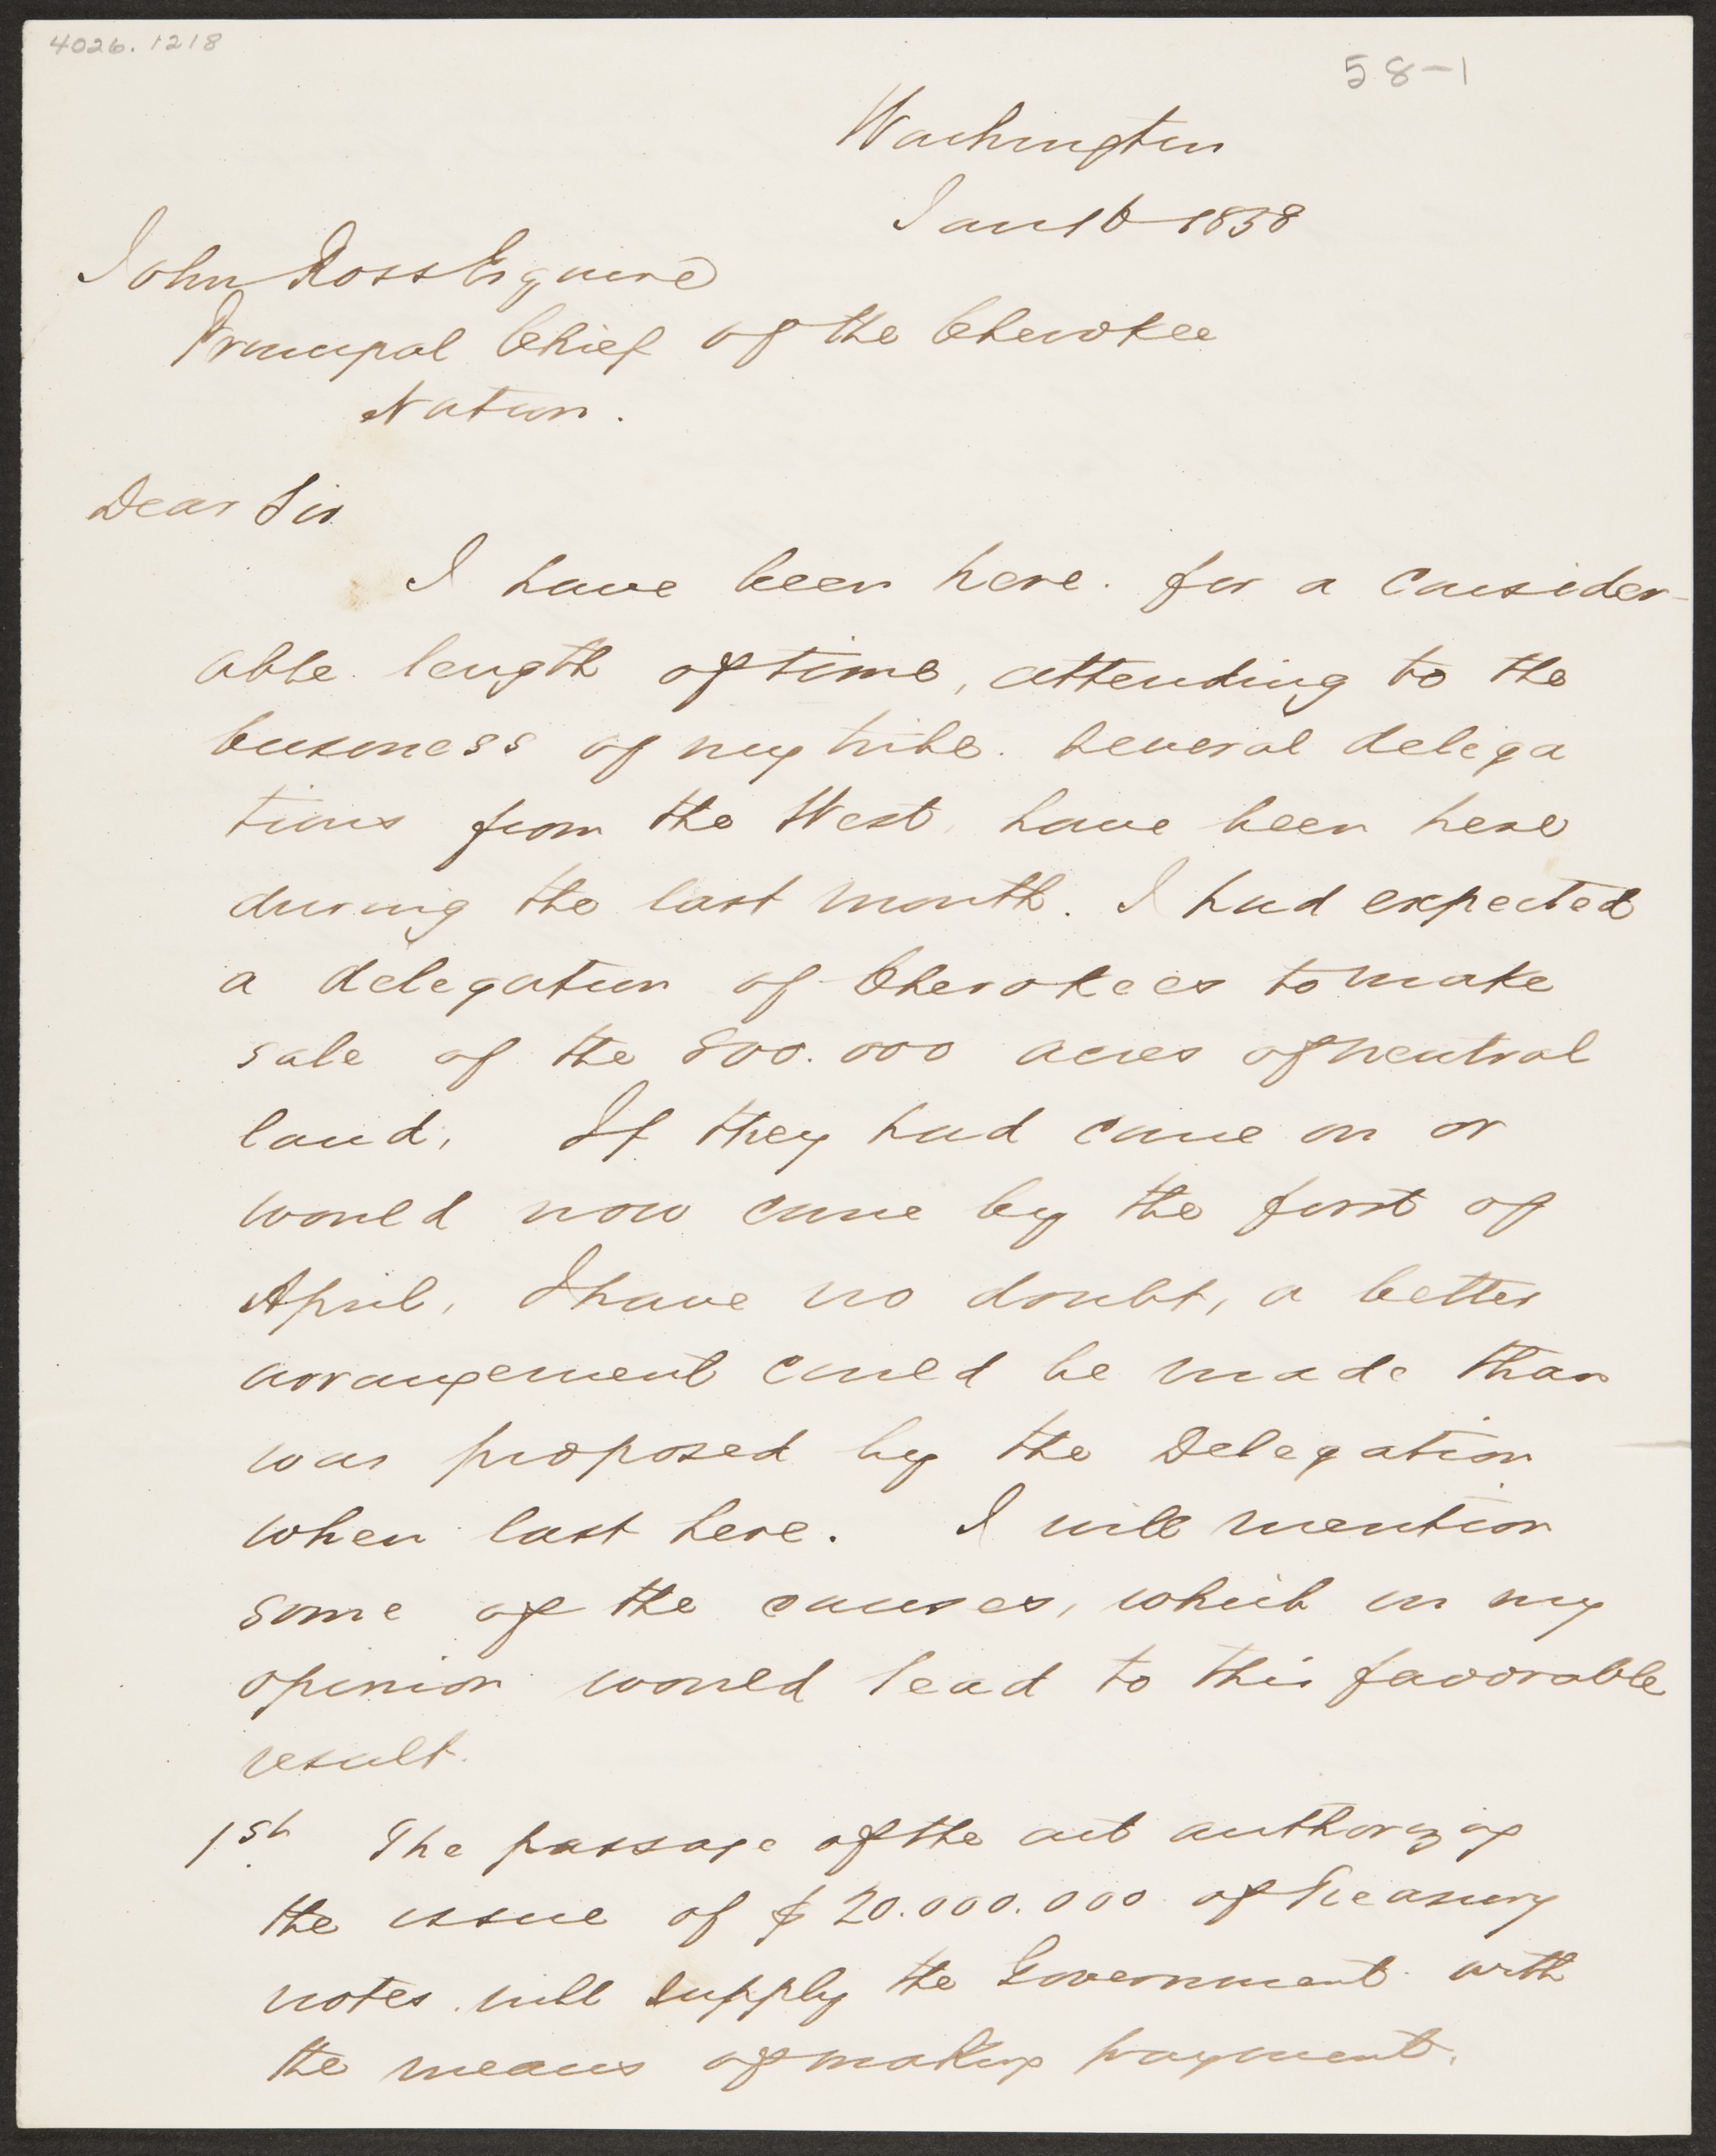 4026.1218
58-1
Washington
Jan 16 1858
John Ross Esquire
Principal Chief of the Cherokee
Nation.
Dear Sir
I have been here. for a consider-
able length of time, attending to the
business of my tribe. Several delega
tions from the West, have been here
during the last month. I had expected
a delegation of Cherokees to make
sale of the 800.000 acres of neutral
land. If they had come on or
would now come by the first of
April, I have no doubt, a better
arrangement could be made than
was proposed by the Delegation
when last here. I will mention
some of the causes, which in my
opinion would lead to this favorable
result.
1st The passage of the act authorizing
the issue of $20.000.000 of Treasury
notes will supply the Government with
the means of making payment.